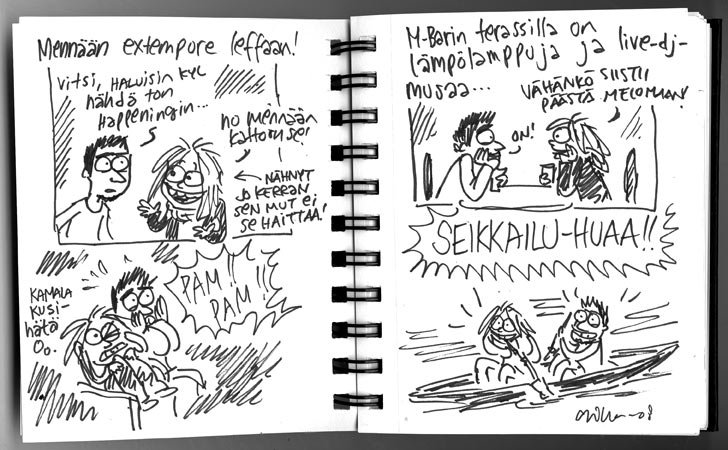 Mennään extempore leffaan!
Vitsi, HALUISIN KYL
nähdä ton
Happeningin...
no mennään
kattoon se!
← NÄHNYT
JO KERRAN
SEN MUT EI
SE HAITTAA!
KAMALA
KUSI-
HÄTÄ
PAM!!
PAM!!
M-Barin terassilla on
lämpölamppuja ja live-dj-
musaa...
VÄHÄNKÖ SIISTII
PÄÄSTÄ MELOMAAN!
ON!
SEIKKAILU-HUAA!!